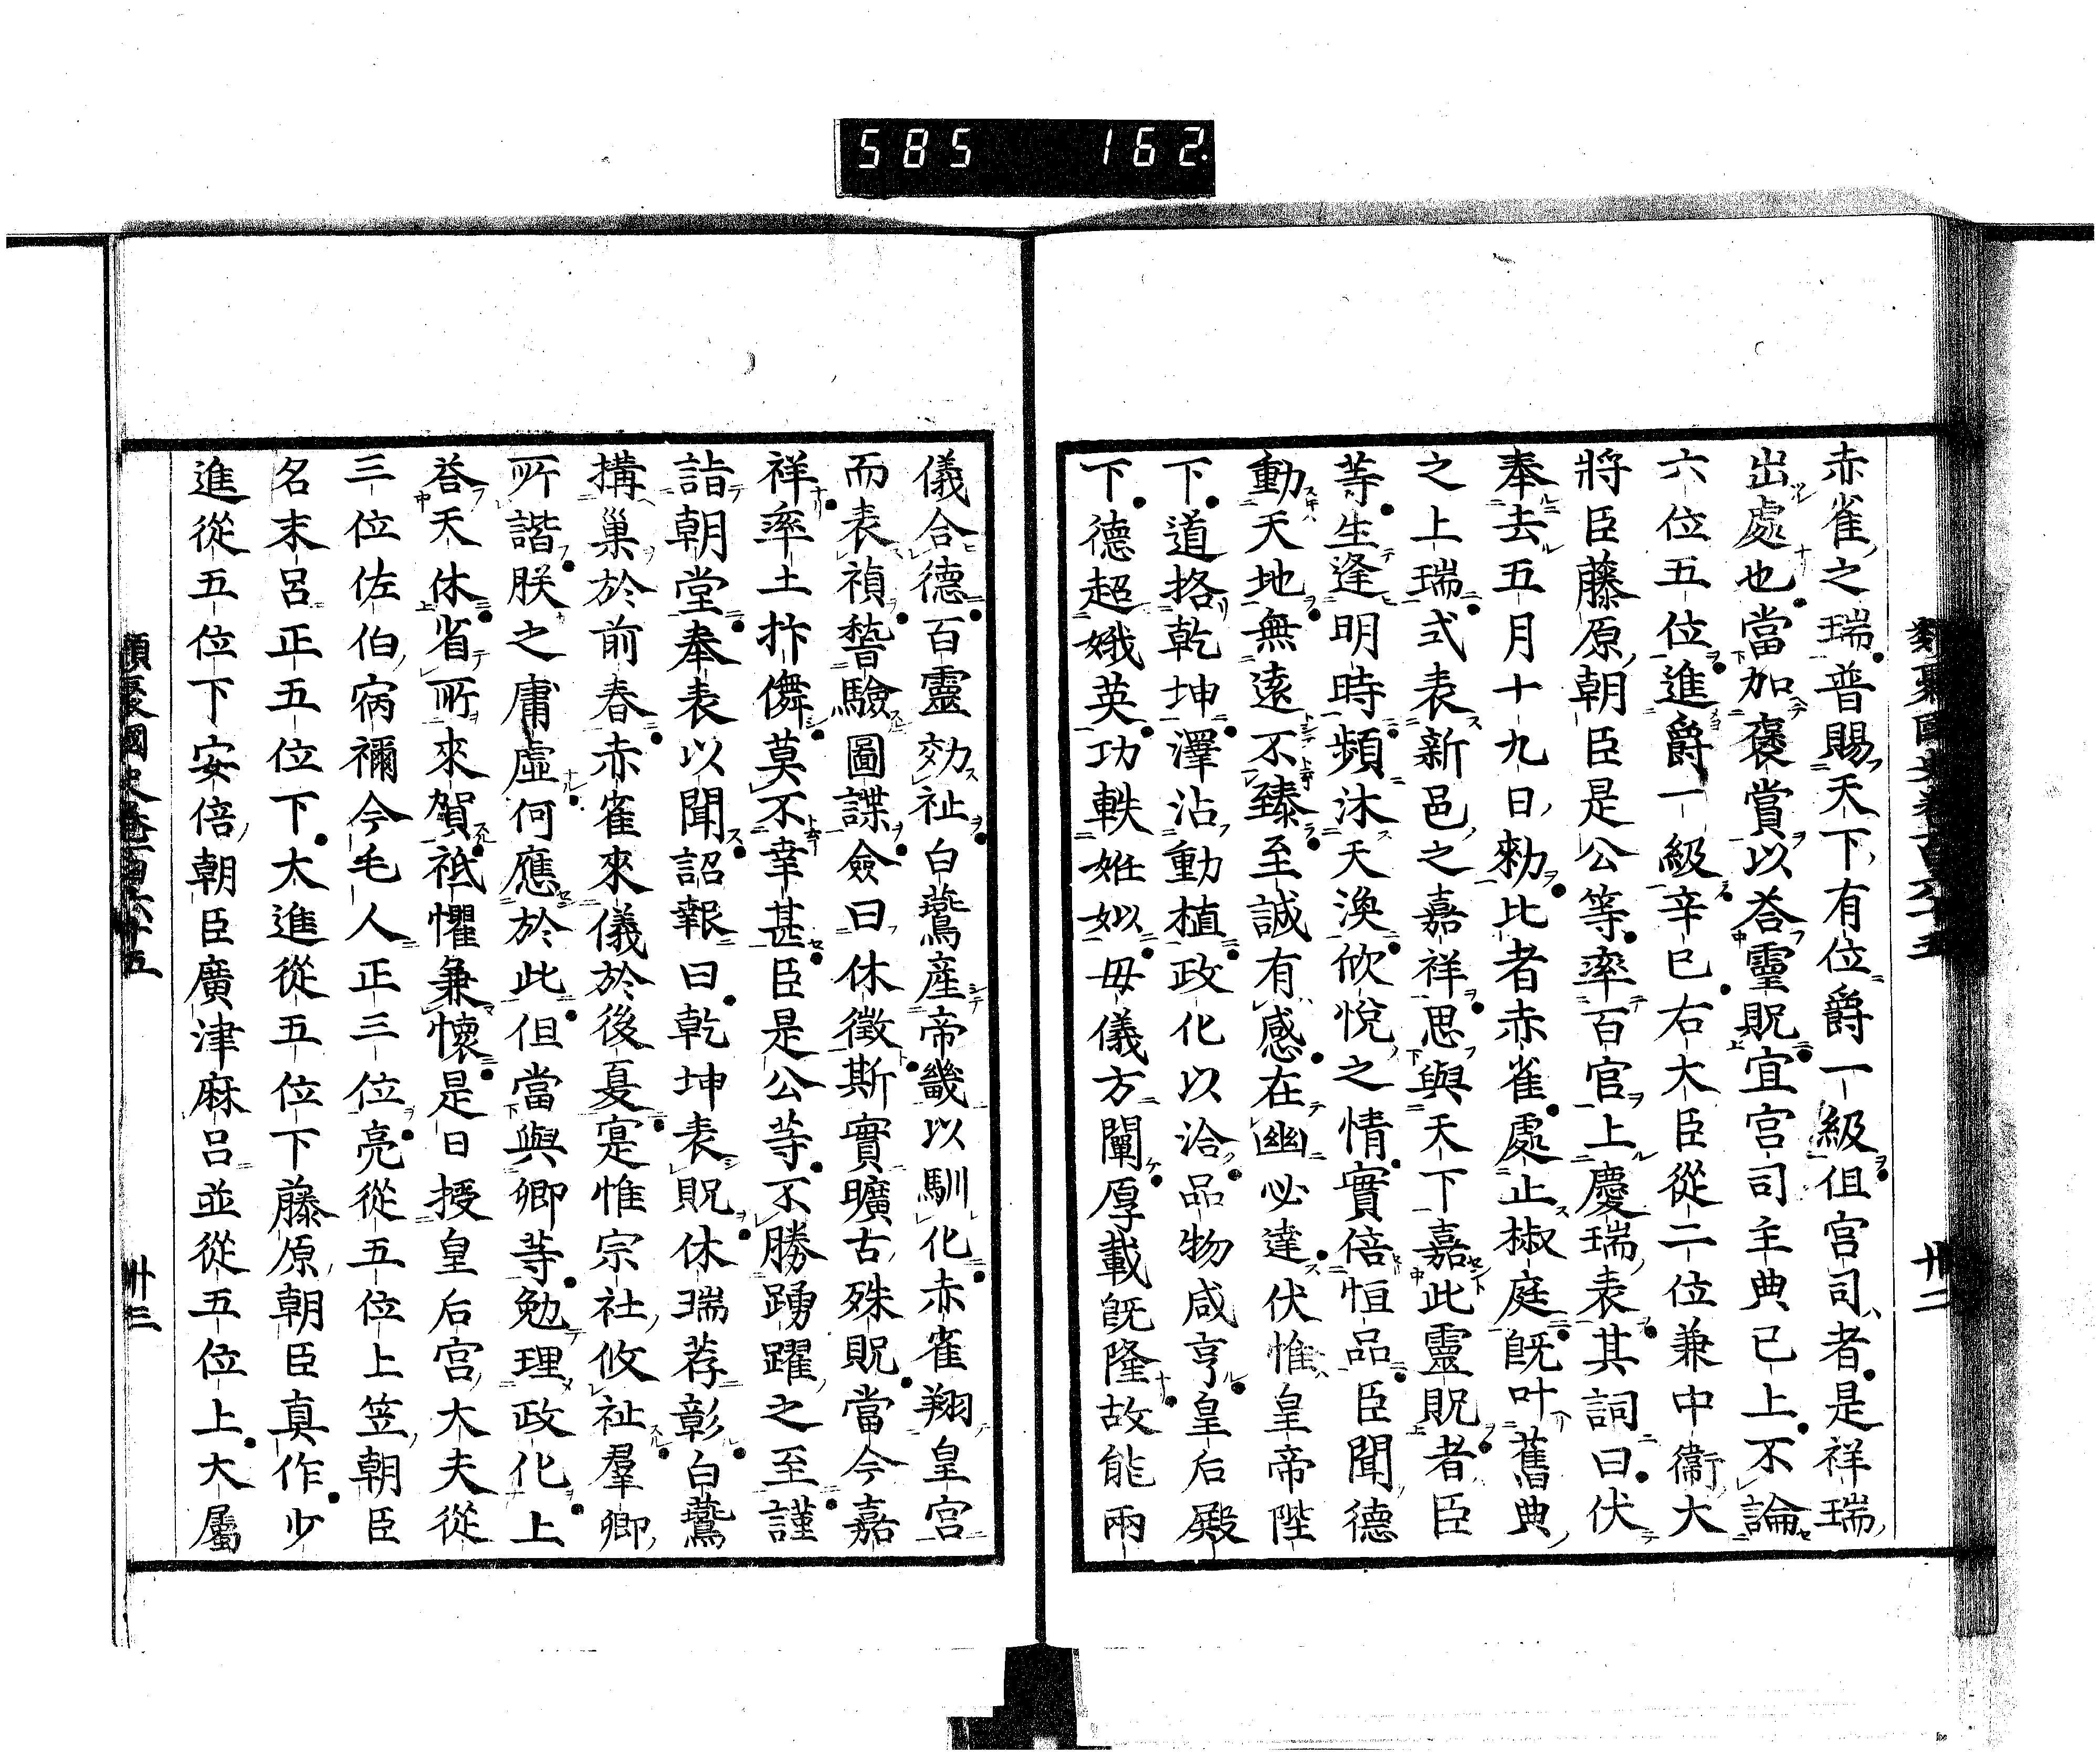 585 162
類聚國史卷百六十五 卅二
赤雀之瑞普賜天下有位爵一級但宮司者是祥瑞
出處也當加褒賞以荅靈貺宜宮司主典已上不論
六位五位進爵一級辛巳右大臣從二位兼中衞大
將臣藤原朝臣是公等率百官上慶瑞表其詞曰伏
奉去五月十九日勑比者赤雀處止椒庭既叶舊典
之上瑞式表新邑之嘉祥思與天下嘉此靈貺者臣
等生逢明時頻沐天渙欣悅之情實倍恒品臣聞德
動天地無遠不臻至誠有感在幽必達伏惟皇帝陛
下道格乾坤澤沾動植政化以洽品物咸亨皇后殿
下德超娥英功軼姙姒毋儀方闡厚載既隆故能兩
儀合德百靈効祉白鷰產帝畿以馴化赤雀翔皇宮
而表禎稽驗圖諜僉曰休徵斯實曠古殊貺當今嘉
祥率土抃儛莫不幸甚臣是公等不勝踴躍之至謹
詣朝堂奉表以聞詔報曰乾坤表貺休瑞荐彰白鷰
搆巢於前春赤雀來儀於後夏寔惟宗社攸祉羣卿
所諧朕之庸虛何應於此但當與卿等勉理政化上
荅天休省所來賀祗懼兼懷是日授皇后宮大夫從
三位佐伯宿禰今毛人正三位亮從五位上笠朝臣
名末呂正五位下大進從五位下藤原朝臣真作少
進從五位下安倍朝臣廣津麻呂並從五位上大屬
類聚國史卷百六十五 卅三